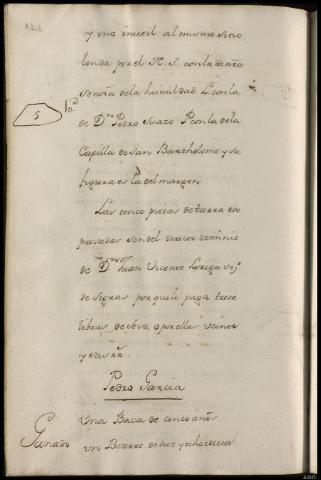 y uno inutil al mismo sitio
linda por el N. S. con la de nrã
señora de la humildad L. con la
de Dn. Pedro Suazo P. con la de la
Capilla de San Bartholome y su
figura es la del margen
S
Las cinco piezas de tierra ex
presadas son del directo dominio
de Dn. Juan Vicente Loriga vez.º
de Sigras por que le paga trece
libras de sevo, o por ellas veinte
y seis rr.s
Pedro Garcia
Ganado
Una Baca de cinco años
un Becerro de diez y ocho meses